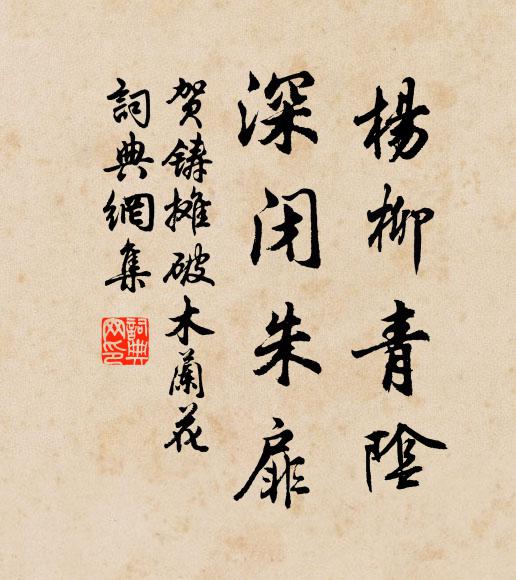 楊柳青陰
深闭朱扉
賀鑄摊破木蘭花
詞典網集
詞典
网印